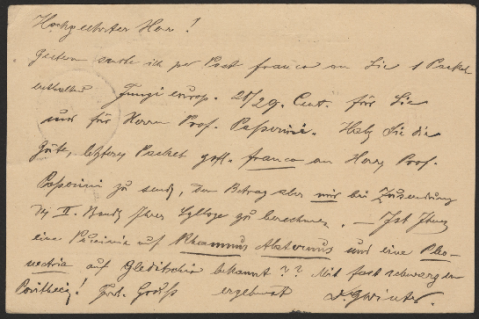 Hochgeehrter Herr!
Gestern sandte ich per Post franco an Sie 1 Packet
enthaltend Fungi europ. 28/29. Cent. für Sie
und für Herrn Prof. Passerini. Haben Sie die
Güte, letzteres Packet gefl. franco an Herrn Prof.
Passerini zu senden, den Betrag aber mir bei Zusendung
des II. Bandes Ihrer Sylloge zu berechnen. — Ist Ihnen
eine Puccinia auf Rhamnus Alaternus und eine Pleo-
nectria auf Gleditschia bekannt?? Mit fast schwarzen
Perithecien! Frdl. Gruß ergebenst Dr. G Winter.